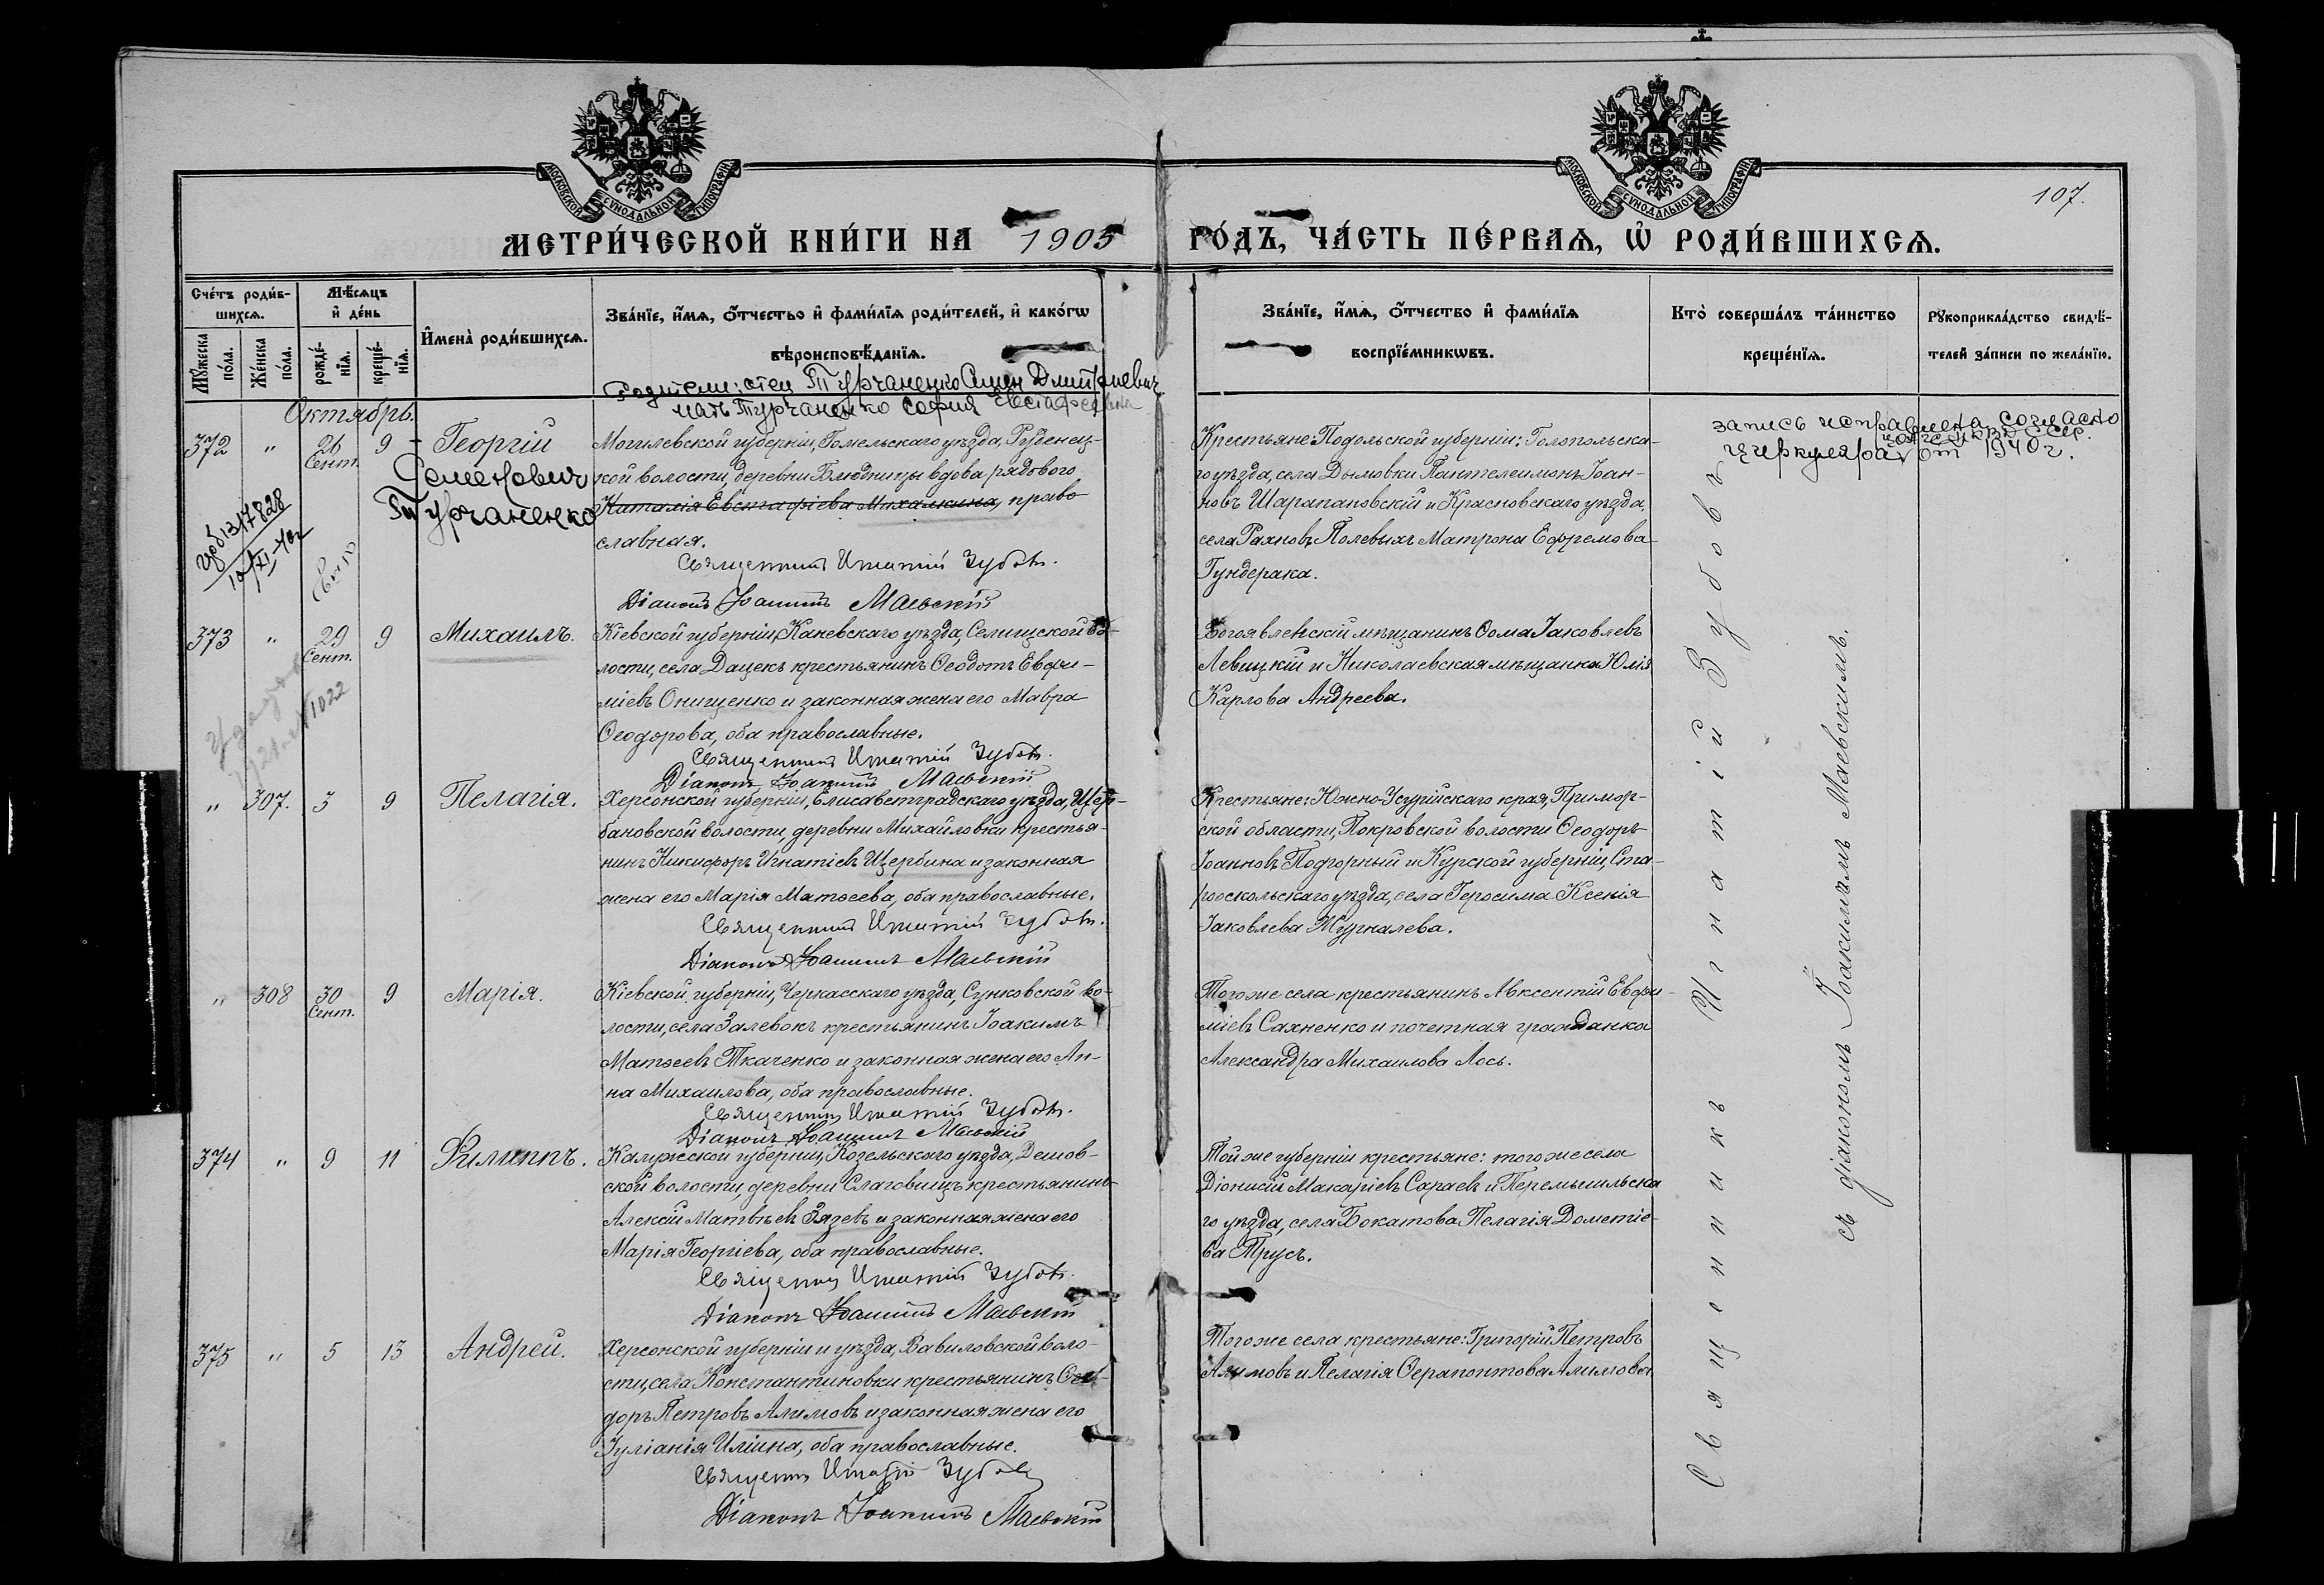 107.
МОСКОВСКОЙ СѴНОДАЛЬНОЙ ТИПОГРАФІИ
МОСКОВСКОЙ СѴНОДАЛЬНОЙ ТИПОГРАФІИ
МЕТРИ́ЧЕСКОЙ КНИ́ГИ НА 1905 ГО́ДЪ, ЧА́СТЬ ПЕ́РВАѦ, Ѡ҆ РОДИ́ВШИХСѦ.
Сче́тъ роди́в-
шихсѧ.
Мꙋ́жеска по́ла.
Же́нска по́ла.
Мѣ́сѧцъ и҆ де́нь
рожде́-нїѧ.
креще́-нїѧ.
И҆мена̀ роди́вшихсѧ.
Зва́нїе, и҆́мѧ, ѻ҆́тчество и҆ фами́лїѧ роди́телей, и҆ како́гѡ
вѣроисповѣ́данїѧ.
Зва́нїе, и҆́мѧ, ѻ҆́тчество и҆ фами́лїѧ
воспрїе́мникѡвъ.
Кто̀ соверша́лъ та́инство
креще́нїѧ.
Рꙋкоприкла́дство свидѣ́-
телей за́писи по жела́нїю.
Родители: отец Турчаненко Семен Дмитриевич
мать Турчаненко София Евстафеевна
Октябрь.
372 " 26 Сент. 9 Георгій
Семенович
Турчаненко
Могилевской губерніи, Гомельскаго уѣзда, Руденец-
кой волости, деревни Блюдницы вдова рядового
Наталія Евстафіева Михалкина, право
славная.
Священникъ Игнатій Зубовъ.
Діаконъ Іоакимъ Маевскій
Крестьяне Подольской губерніи: Голопольска-
го уѣзда, села Дымовки Пантелеимонъ Іоан-
новъ Шарапановскій и Красновскаго уѣзда,
села Рахновъ Полевыхъ Матрона Ефремова
Гундерака.
запись исправлена согласно
циркуляра от 1940 г.
373 " 29 Сент. 9 Михаилъ.
Кіевской губерніи, Каневскаго уѣзда, Селищской во-
лости, села Дацекъ крестьянинъ Ѳеодотъ Евфи-
міевъ Онищенко и законная жена его Мавра
Ѳеодорова, оба православные.
Священникъ Игнатій Зубовъ.
Діаконъ Іоакимъ Маевскій
Богоявленскій мѣщанинъ Ѳома Іаковлевъ
Левицкій и Николаевская мѣщанка Юлія
Карлова Андреева.
" 307. 3 9 Пелагія.
Херсонской губерніи, Елисаветградскаго уѣзда, Щер-
бановской волости, деревни Михайловки крестья-
нинъ Никифоръ Игнатіевъ Щербина и законная
жена его Марія Матѳеева, оба православные.
Священникъ Игнатій Зубовъ.
Діаконъ Іоакимъ Маевскій
Крестьяне: Южно-Усурійскаго края, Примор-
ской области, Покровской волости Ѳеодоръ
Іоанновъ Подгорный и Курской губерніи, Ста-
рооскольскаго уѣзда, села Геросима Ксенія
Іаковлева Журналева.
" 308 30 Сент. 9 Марія.
Кіевской губерніи, Черкасскаго уѣзда, Сунковской во-
лости, села Залевокъ крестьянинъ Іоакимъ
Матѳеевъ Ткаченко и законная жена его Ан-
на Михаилова, оба православные.
Священникъ Игнатій Зубовъ.
Діаконъ Іоакимъ Маевскій
Того же села крестьянинъ Авксентій Евфи-
міевъ Сахненко и почетная гражданка
Александра Михаилова Лось.
374 " 9 11 Филиппъ.
Калужской губерніи, Козельскаго уѣзда, Дешов-
ской волости, деревни Слаговищъ крестьянинъ
Алексій Матвѣевъ Зязевъ и законная жена его
Марія Георгіева, оба православные.
Священникъ Игнатій Зубовъ.
Діаконъ Іоакимъ Маевскій
Той же губерніи крестьяне: того же села
Діонисій Макаріевъ Сараевъ и Перемышльска
го уѣзда, села Бокатова Пелагія Дометіе-
ва Трусъ.
375 " 5 13 Андрей.
Херсонской губерніи и уѣзда, Вавиловской воло-
сти, села Константиновки крестьянинъ Ѳео-
доръ Петровъ Алимовъ и законная жена его
Іуліанія Иліина, оба православные.
Священникъ Игнатій Зубовъ
Діаконъ Іоакимъ Маевскій
Того же села крестьяне: Григорій Петровъ
Алимовъ и Пелагія Ѳерапонтова Алимова
Священникъ Игнатій Зубовъ
съ діакономъ Іоакимомъ Маевскимъ.